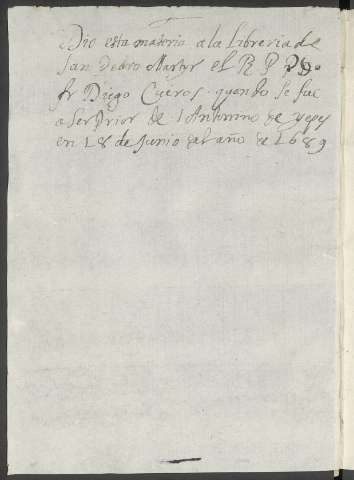 Dio esta materia a la Libreria de
San Pedro Martyr el R P Pdo.
fr Diego Cueros quando se fue
a ser Prior de S Antonino de yepes
en 18 de Junio del año de 1689